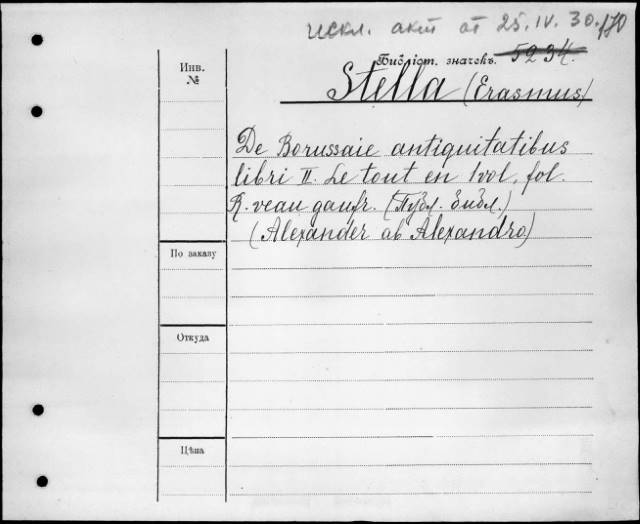 Искл. акт от 25.IV.30./70
Библіот. значекъ. 5234.
Инв.
№
Stella (Erasmus)
De Borussaie antiquitatibus
libri II. Le tout en 1 vol. fol.
R. veau gaufr. (Публ. библ.)
(Alexander ab Alexandro)
По заказу
Откуда
Цѣна